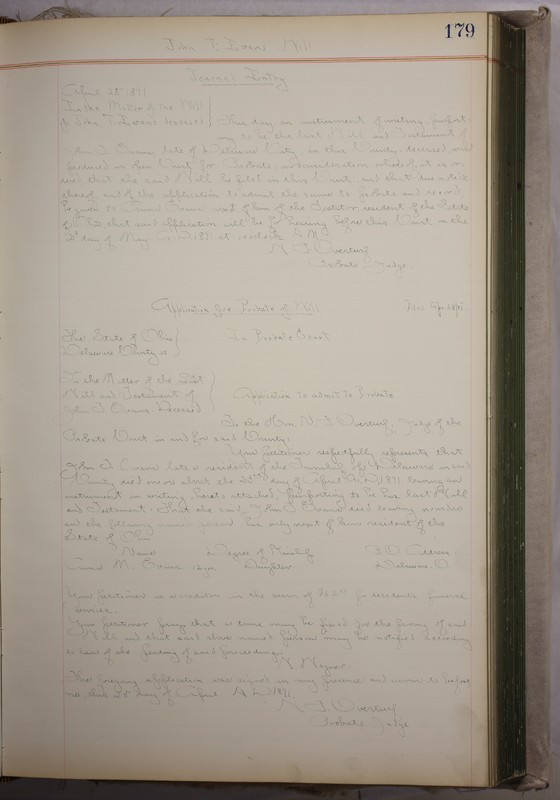 179
John T. Evans Will
Journal Entry
April 28 1891
In the Matter of the Will
of John T. Evans deceased This day an instrument of writing, purport
ing to be the last Will and Testament of
John T. Evans, late of Delaware City, in this County, deceased was
produced in open Court for Probate, in consideration whereof, it is or
dered that the said Will be filed in this Court, and that due notice
thereof, and of the application to admit the same to probate and record
be given to next of kin of the Testator, resident of the State
of Ohio, that said application will be for hearing before this Court on the
day of May A.D. 1891 at o'clock
N. F. Overturf
Probate Judge.
Application for Probate of Will
The State of Ohio In Probate Court
Delaware County ss
In the Matter of the Last
Will and Testament of Application to admit to Probate
John T. Evans Deceased
To the Hon. N. F. Overturf, Judge of the
Probate Court in and for said County:
Your Petitioner respectfully represents that
John T. Evans late a resident of the Township of Delaware in said
County died on or about the day of April A.D. 1891 leaving an
instrument in writing, hereto attached, purporting to be his last Will
and Testament. That the said John T. Evans died leaving no widow
and the following named person his only next of kin resident of the
State of Ohio
Name Degree of Kinship P.O. Address
M. Evans Daughter Delaware, O.
Your Petitioner is a creditor in the sum of for funeral
service.
Your Petitioner prays that a time may be fixed for the proving of said
Will and that said above named person may be notified according
to law of the pending of said proceedings.
N. Wagner
The foregoing application was signed in my presence and sworn to before
me, this 28 day of April A.D. 1891.
N. F. Overturf
Probate Judge